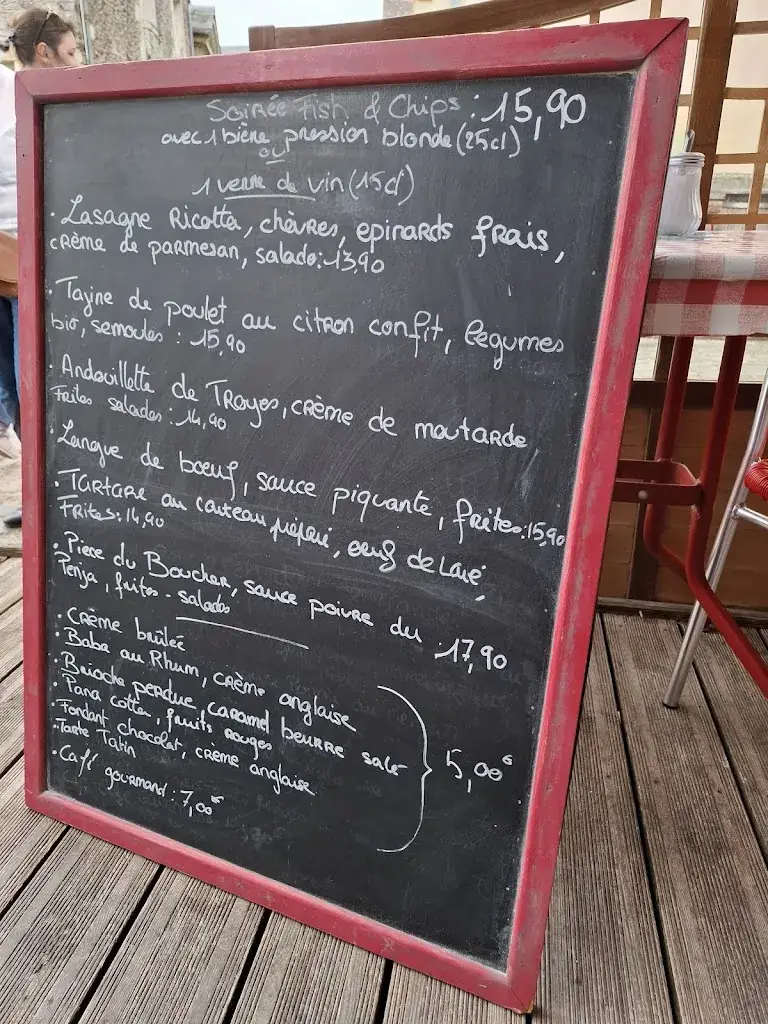 Soirée Fish & Chips : 15,90
avec 1 bière pression blonde (25cl)
ou
1 verre de vin (15cl)
· Lasagne Ricotta, chèvres, epinards frais,
crème de parmesan, salade : 13,90
· Tajine de poulet au citron confit, légumes
bio, semoules : 15,90
· Andouillette de Troyes, crème de moutarde
Frites salades : 14,90
· Langue de boeuf, sauce piquante, frites : 15,90
· Tartare au couteau préparé, oeuf de Laié,
Frites : 14,90
· Piece du Boucher, sauce poivre du
Penja, frites - salades : 17,90
· Crème brûlée
· Baba au Rhum, crème anglaise
· Brioche perdue, caramel beurre salé
· Pana cotta, fruits rouges
· Fondant chocolat, crème anglaise
· Tarte Tatin
5,00€
· Café gourmand : 7,00€